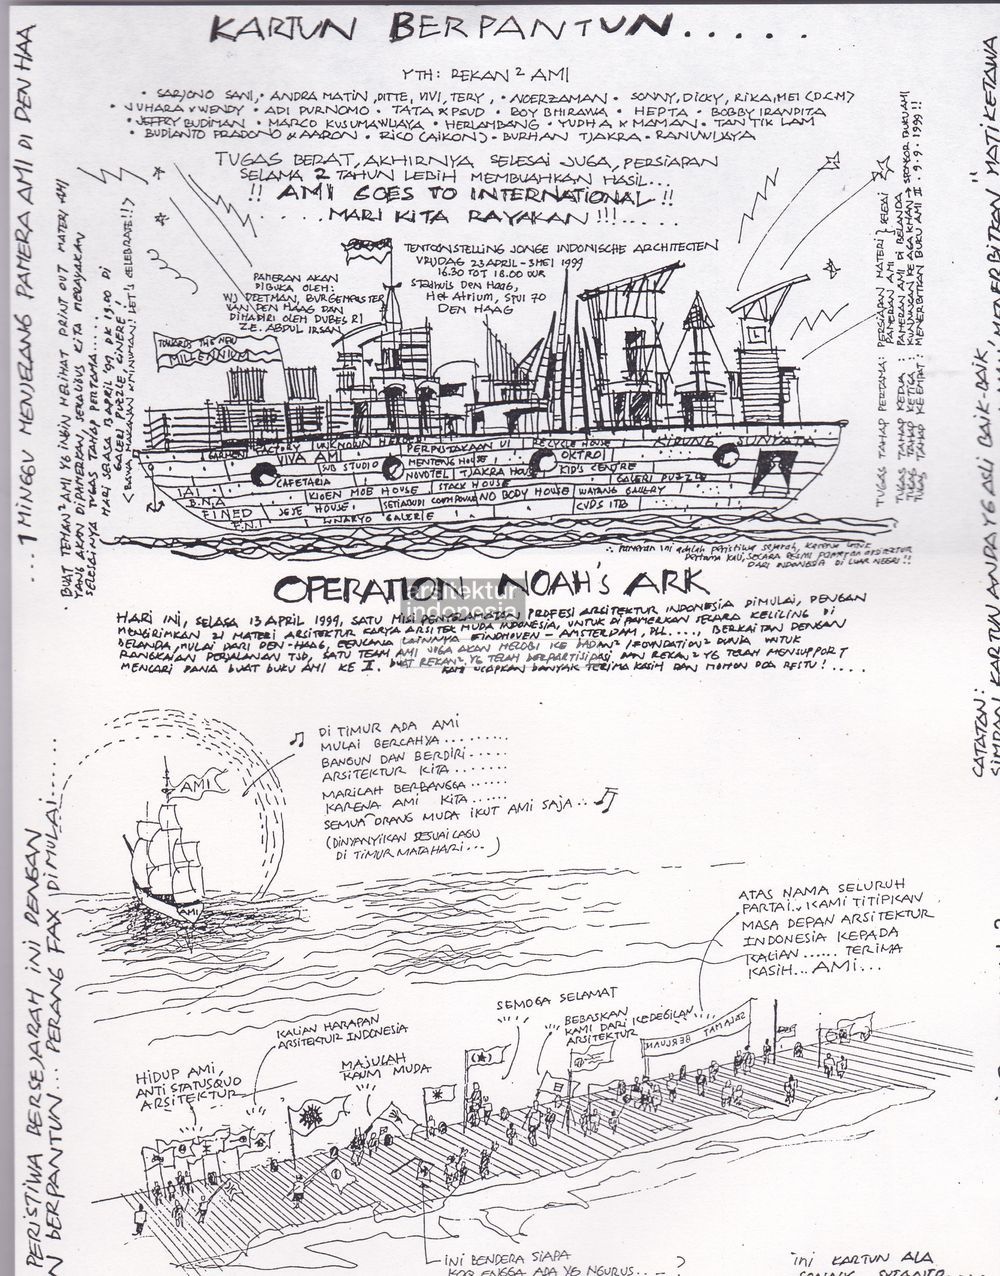 KARTUN BERPANTUN.....
YTH: REKAN2 AMI
• SARJONO SANI, • ANDRA MATIN, DITTE, VIVI, TERY, • NOERZAMAN • SONNY, DICKY, RIKA, MEI (D.C.M)
• JUHARA & WENDY • ADI PURNOMO • TATA & PSUD • BOY BHIRAWA • HEPTA • BOBBY IRANDITA
• JEFFRY BUDIMAN • MARCO KUSUMAWIJAYA • HERLAMBANG • YUDHA & MAMAN • TAN TIK LAM
• BUDIANTO PRADONO & AARON • RICO (AIKON) • BURHAN TJAKRA • RANUWIJAYA
TUGAS BERAT, AKHIRNYA SELESAI JUGA, PERSIAPAN
SELAMA 2 TAHUN LEBIH MEMBUAHKAN HASIL...
!! AMI GOES TO INTERNATIONAL !!
.....MARI KITA RAYAKAN!!!.....
... 1 MINGGU MENJELANG PAMERAN AMI DI DEN HAA
• BUAT TEMAN2 AMI YG INGIN MELIHAT PRINT OUT MATERI AMI
YANG AKAN DIPAMERKAN, SEKALIGUS KITA MERAYAKAN
SELESAINYA TUGAS TAHAP PERTAMA.....
HARI SELASA 13 APRIL '99, PK 19.00 DI
GALERI PUZZLE, CINERE!
(BAWA MAKANAN & MINUMAN! LET'S CELEBRATE!!)
TENTOONSTELLING JONGE INDONISCHE ARCHITECTEN
VRIJDAG 23 APRIL - 3 MEI 1999
16.30 TOT 18.00 UUR
STADHUIS DEN HAAG,
HET ATRIUM, SPUI 70
DEN HAAG
PAMERAN AKAN
DIBUKA OLEH:
WJ DEETMAN, BURGEMEESTER
VAN DEN HAAG DAN
DIHADIRI OLEH DUBES RI
Z.E. ABDUL IRSAN.
TOWARDS THE NEW
MILLENNIUM
TUGAS TAHAP PERTAMA: PERSIAPAN MATERI } SELESAI
PAMERAN AMI
TUGAS TAHAP KEDUA : PAMERAN AMI DI BELANDA
TUGAS TAHAP KETIGA : KUNJUNGAN KE AGA KHAN → SPONSOR BUKU AMI
TUGAS TAHAP KEEMPAT : MENERBITKAN BUKU AMI II • 9.9.1999!!
GARMEN FACTORY
UNKNOWN HEROES
PERPUSTAKAAN UI
RECYCLE HOUSE
KIDUNG SUNYATA
VIVA AMI
SUB STUDIO
MENTENG HOUSE
OKTROI
CAFETARIA
NOVOTEL
TJAKRA HOUSE
KID'S CENTRE
I.A.I
KLOEN MOE HOUSE
STACK HOUSE
GALERI PUZZLE
B.N.A
SETIABUDI
NO BODY HOUSE
WAYANG GALLERY
FINED
JEJE HOUSE
CVDS ITB
F.N.I
WINARYO GALERIE
∴ PAMERAN INI ADALAH PERISTIWA SEJARAH, KARENA UNTUK
PERTAMA KALI, SECARA RESMI PAMERAN ARSITEKTUR
DARI INDONESIA DI LUAR NEGRI!!
OPERATION NOAH'S ARK
arsitektur
indonesia
HARI INI, SELASA 13 APRIL 1999, SATU MISI PENYELAMATAN PROFESI ARSITEKTUR INDONESIA DIMULAI, DENGAN
MENGIRIMKAN 21 MATERI ARSITEKTUR KARYA ARSITEK MUDA INDONESIA, UNTUK DI PAMERKAN SECARA KELILING DI
BELANDA, MULAI DARI DEN-HAAG, RENCANA LAINNYA EINDHOVEN - AMSTERDAM, DLL...., BERKAITAN DENGAN
RANGKAIAN PERJALANAN TSB, SATU TEAM AMI JUGA AKAN MELOBI KE BADAN2 /FOUNDATION2 DUNIA UNTUK
MENCARI DANA BUAT BUKU AMI KE II. BUAT REKAN2 YG TELAH BERPARTISIPASI DAN REKAN2 YG TELAH MENSUPPORT
KAMI UCAPKAN BANYAK TERIMA KASIH DAN MOHON DOA RESTU!....
♫ DI TIMUR ADA AMI
MULAI BERCAHYA..........
BANGUN DAN BERDIRI......
ARSITEKTUR KITA........
MARILAH BERBANGGA......
KARENA AMI KITA......
SEMUA ORANG MUDA IKUT AMI SAJA... ♫
(DINYANYIKAN SESUAI LAGU
DI TIMUR MATAHARI...)
AMI
AMI
ATAS NAMA SELURUH
PARTAI.. KAMI TITIPKAN
MASA DEPAN ARSITEKTUR
INDONESIA KEPADA
KALIAN...... TERIMA
KASIH... AMI...
SEMOGA SELAMAT
BEBASKAN
KAMI DARI KEDEGILAN
ARSITEKTUR
SELAMAT BERJUANG
KALIAN HARAPAN
ARSITEKTUR INDONESIA
MAJULAH
KAUM MUDA
HIDUP AMI,
ANTI STATUSQUO
ARSITEKTUR
INI BENDERA SIAPA
KOQ ENGGA ADA YG NGURUS....?
INI KARTUN ALA
PERISTIWA BERSEJARAH INI DENGAN
N BERPANTUN... PERANG FAX DIMULAI.....
CATATAN:
SIMPAN KARTUN ANDA YG ASLI BAIK-BAIK,
MENERBITKAN "MATI KETAWA